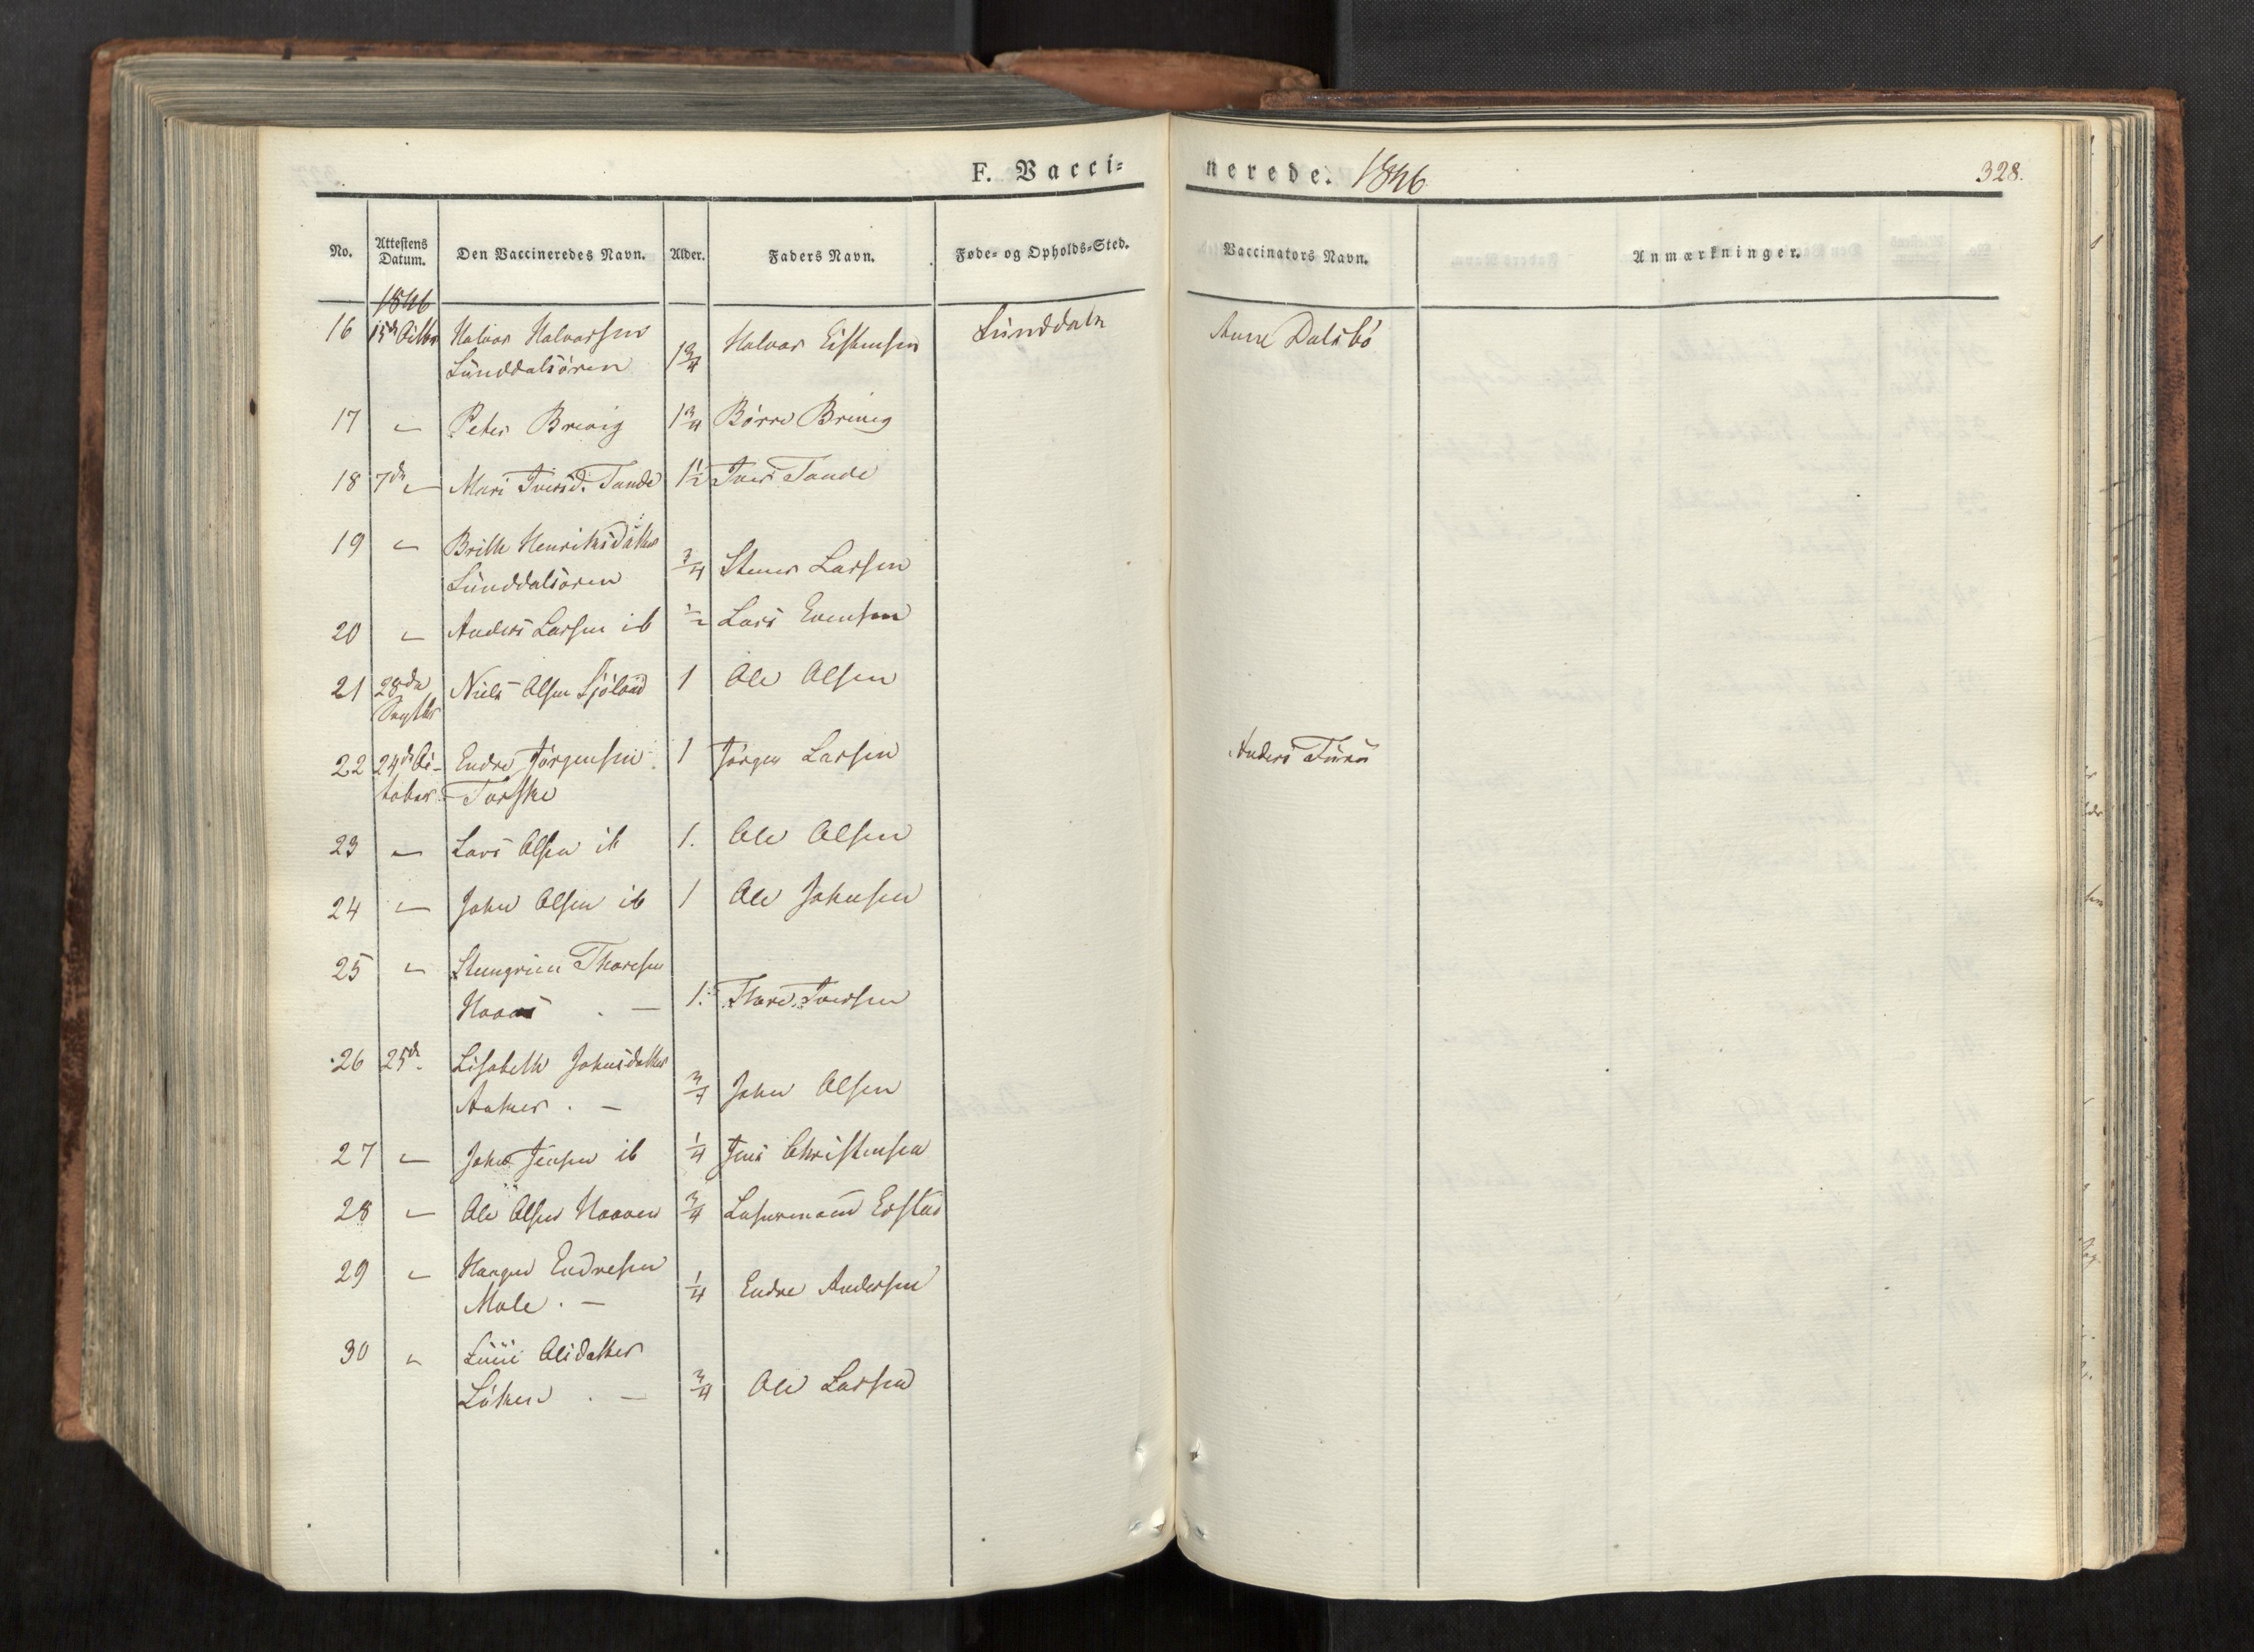 F. Vacci=
nerede. 1846
328.
No. Attestens Datum. Den Vaccineredes Navn. Alder. Faders Navn. Føde= og Opholds=Sted. Vaccinators Navn. Anmærkninger.
1846
16 15de Octbr Halvor Halvorsen Halvor Eistensen Sunddale Anne Dalsbö
Sunddalsören 1 3/4
17 " Peter Brevig 1 3/4 Börre Brevig
18 7de " Mari Iversd. Tande 1 1/2 Iver Tande
19 " Brith Henriksdatter
Sunddalsören 3/4 Larsen
20 " Anders Larsen ib 1/2 Lars Evensen
21 28de Niels Olsen Sjöland 1 Ole Olsen
Septbr
22 24de Oc- Endre Jörgensen 1 Jörgen Larsen Anders Furu
tober Torske
23 " Lars Olsen ib 1. Ole Olsen
24 " John Olsen ib 1 Ole Johnsen
25 " Steingrim Thoresen
1. Thore Iversen
26 25de Lisabeth Johnsdatter
Aaker . — 3/4 John Olsen
27 " John Jensen ib 1/4 Jens Christensen
28 " Ole Olsen Hoaven 3/4
29 " Endresen
Male . — 1/4 Endre Andersen
30 " Olsdatter
Löken . — 3/4 Ole Larsen